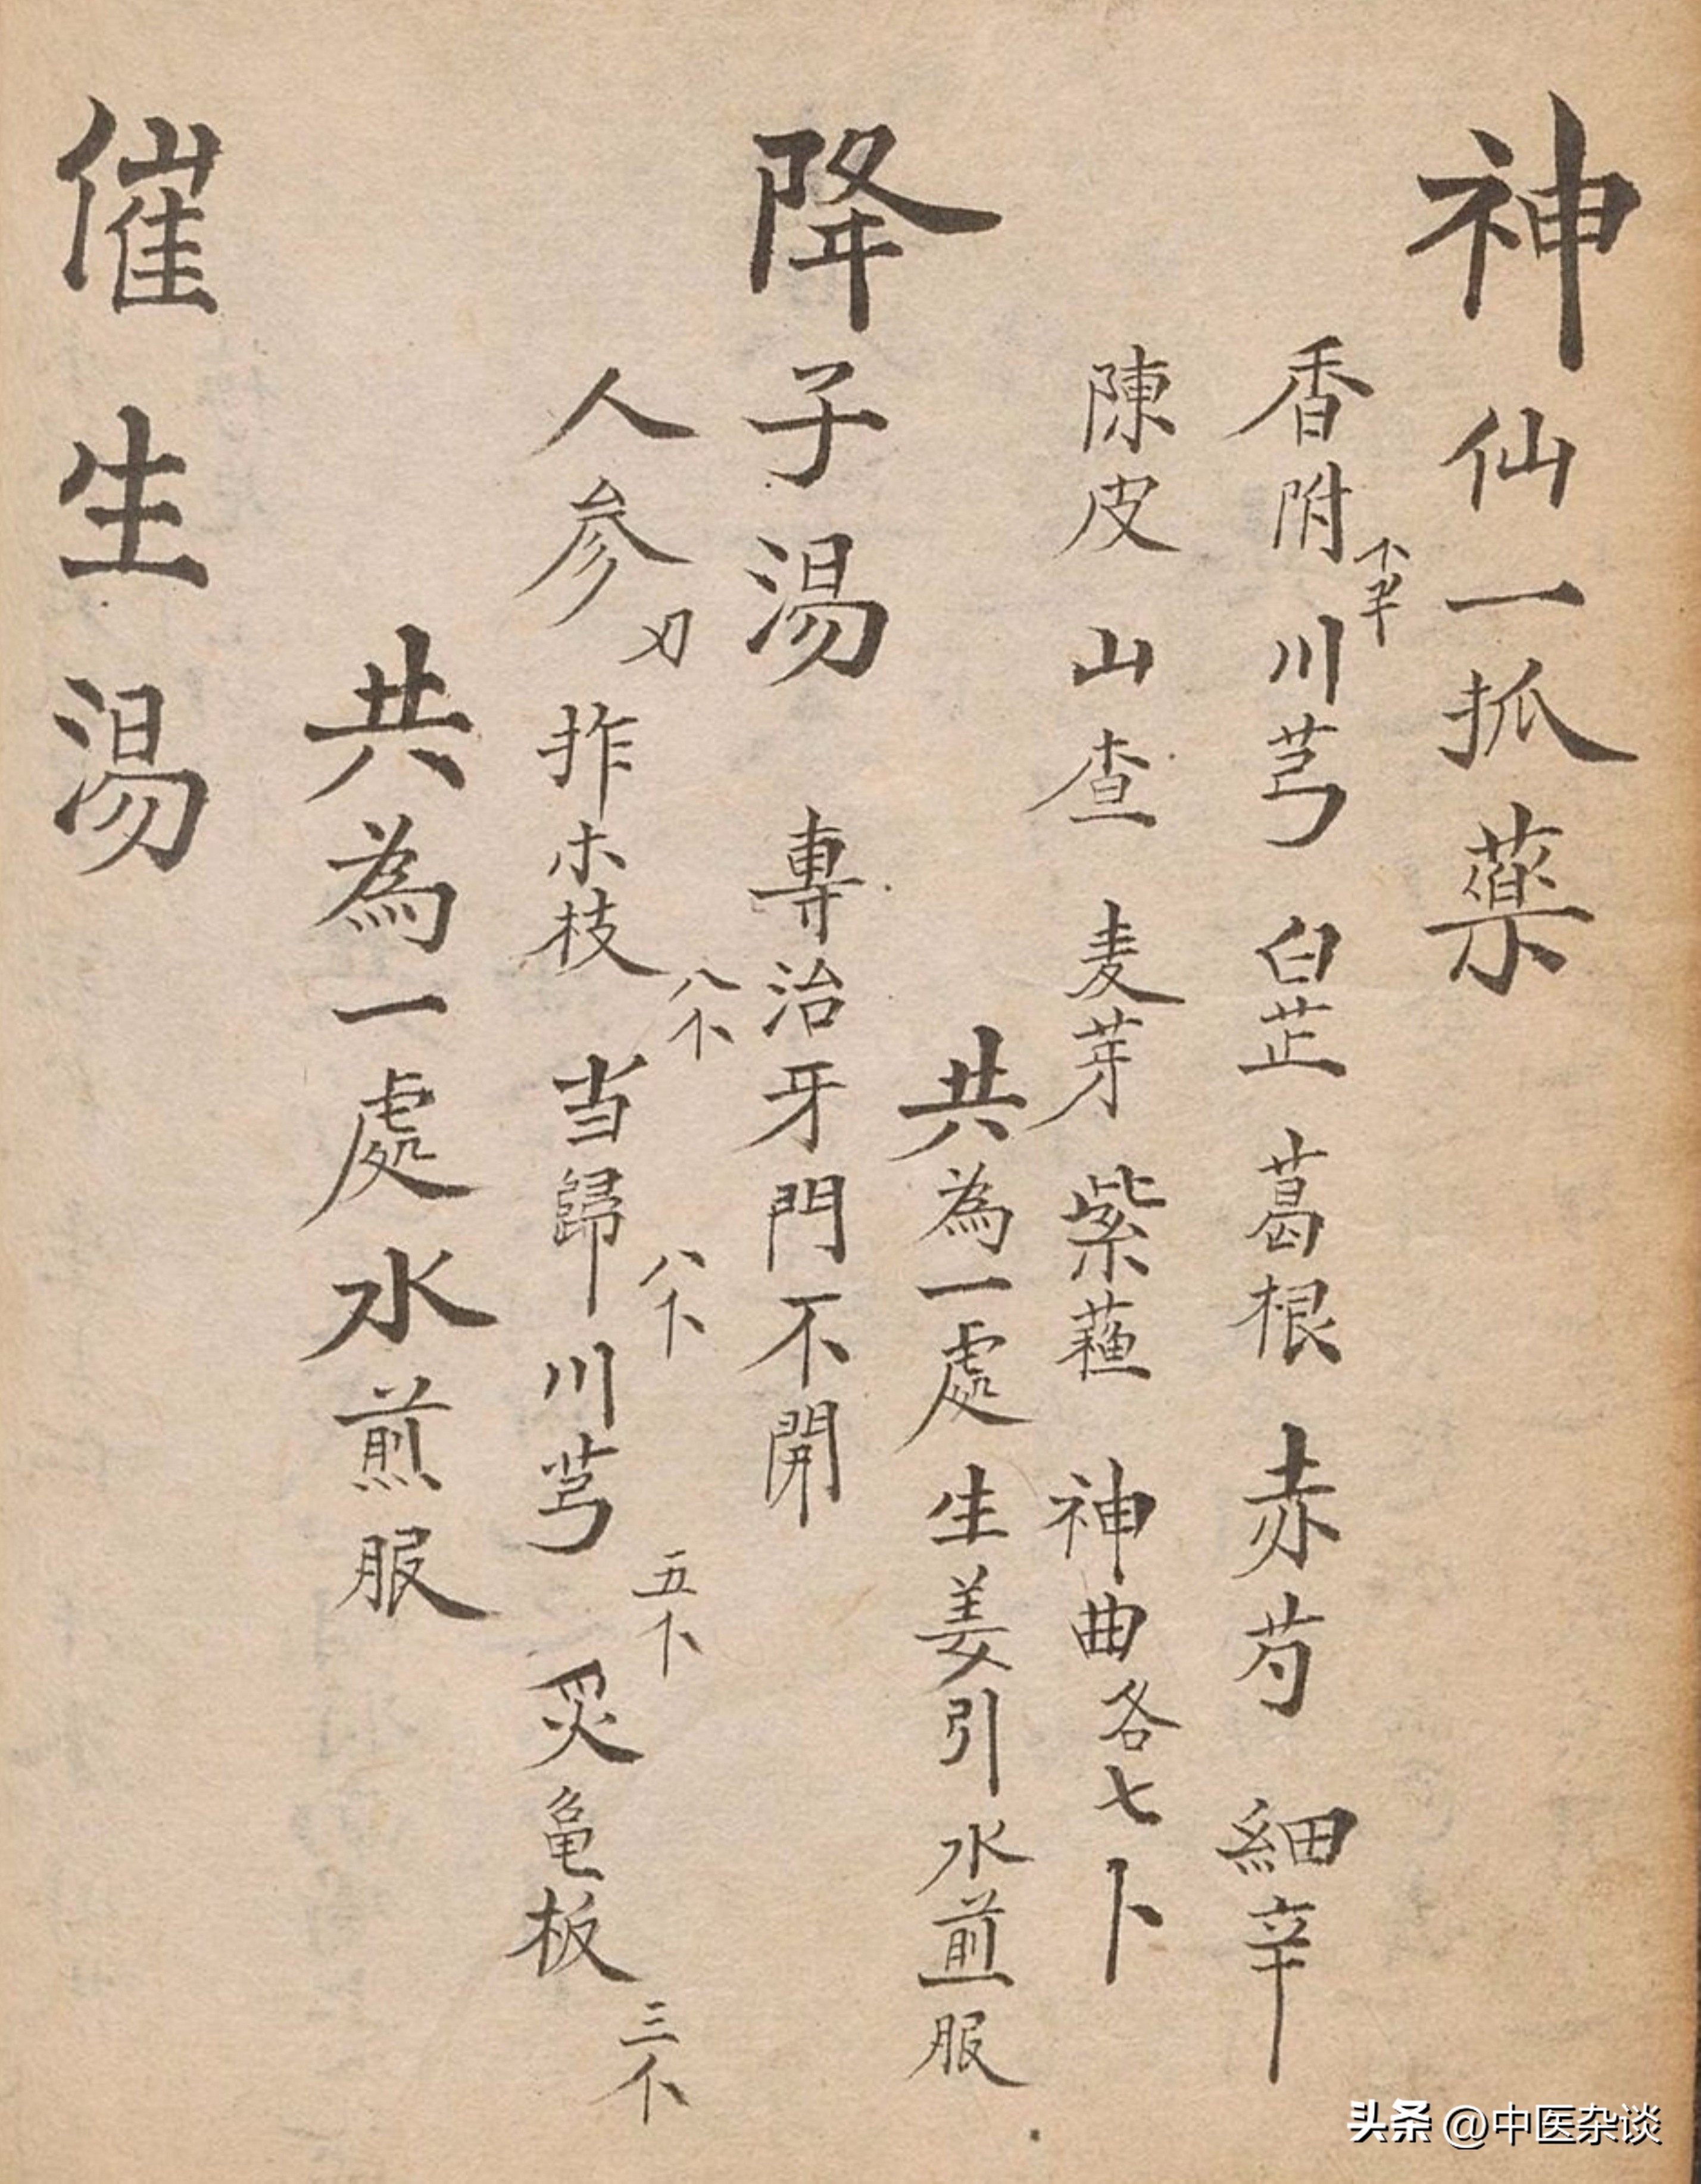 神仙一抓藥
香附 川芎 白芷 葛根 赤芍 細辛
陳皮 山查 麦芽 紫蘓 神曲各七卜
共為一處生姜引水煎服
降子湯 專治牙門不開
人参 拃木枝八个 当歸八卜 川芎五卜 炙亀板三个
共為一處水煎服
催生湯
头条 @中医杂谈